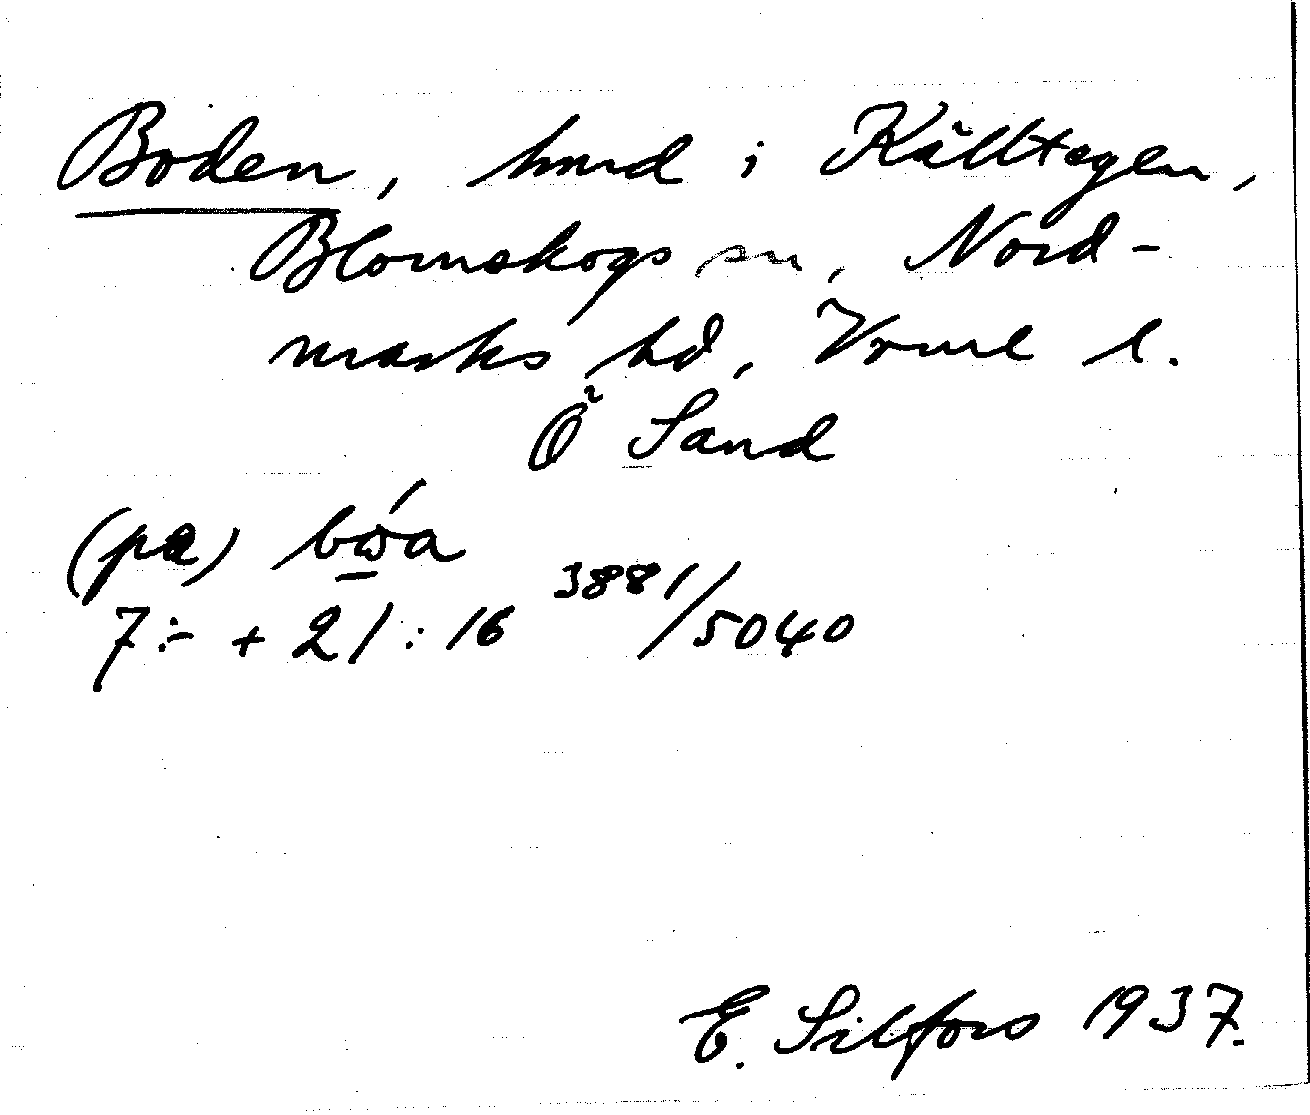 Boden, hmd i Källtegen,
Blomskogs sn, Nord-
marks hd, Vrml l.
Ö Sand
(pa) bɷ́a
7:- + 21:16 3881/5040
E. Silfors 1937.